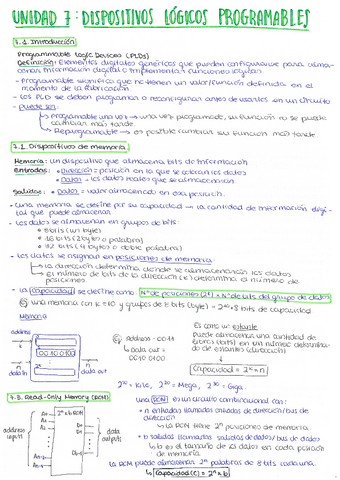 UNIDAD 7: DISPOSITIVOS LÓGICOS PROGRAMABLES
7.1. Introducción
Programmable Logic Devices (PLDs)
Definición: Elementos digitales genéricos que pueden configurarse para almacenar información digital o implementar funciones lógicas
- Programable significa que no tienen un valor/función definida en el momento de la fabricación.
- Los PLD se deben programar o reconfigurar antes de usarlos en un circuito
- Puede ser:
↳ Programable una vez → una vez programado, su función no se puede cambiar más tarde
↳ Reprogramable → es posible cambiar su función más tarde
7.2. Dispositivos de memoria
Memoria: un dispositivo que almacena bits de información
Entradas: • Dirección = posición en la que se cobran los datos
• Datos - los datos reales que se almacenarán
Salidas: • Datos - valor almacenado en esa posición.
- una memoria se define por su capacidad → la cantidad de información digital que puede almacenar
- Los datos se almacenan en grupos de bits:
• 8 bits (un byte)
• 16 bits (2 bytes o palabra)
• 32 bits (4 bytes o doble palabra)
- Los datos se asignan en posiciones de memoria
↳ la dirección determina dónde se almacenarán los datos
↳ el número de bits de la dirección (k) determina el número de posiciones.
- La capacidad se define como: Nº de posiciones (2ᵏ) × Nº de bits del grupo de datos
una memoria con k=10 y grupos de 8 bits (byte) → 2¹⁰ · 8 bits de capacidad
Memoria
address
00100100
data in
data out
address = 0011
↳ data out = 0010 0100
Es como un estante
Puede almacenar una cantidad de libros (bits) en un número determinado de estantes (dirección)
Capacidad = 2ᵏ × n
2¹⁰ = Kilo, 2²⁰ = Mega, 2³⁰ = Giga.
7.3. Read-Only Memory (ROM)
address inputs
2ⁿ × b ROM
data outputs
una ROM es un circuito combinacional con:
• n entradas llamadas entradas de dirección/bus de dirección
↳ La ROM tiene 2ⁿ posiciones de memoria.
• b salidas llamadas salidas de datos/bus de datos
↳ b es el tamaño de los datos en cada posición de memoria.
La ROM puede almacenar 2ⁿ palabras de b bits cada una
↳ Capacidad (C) = 2ⁿ × b